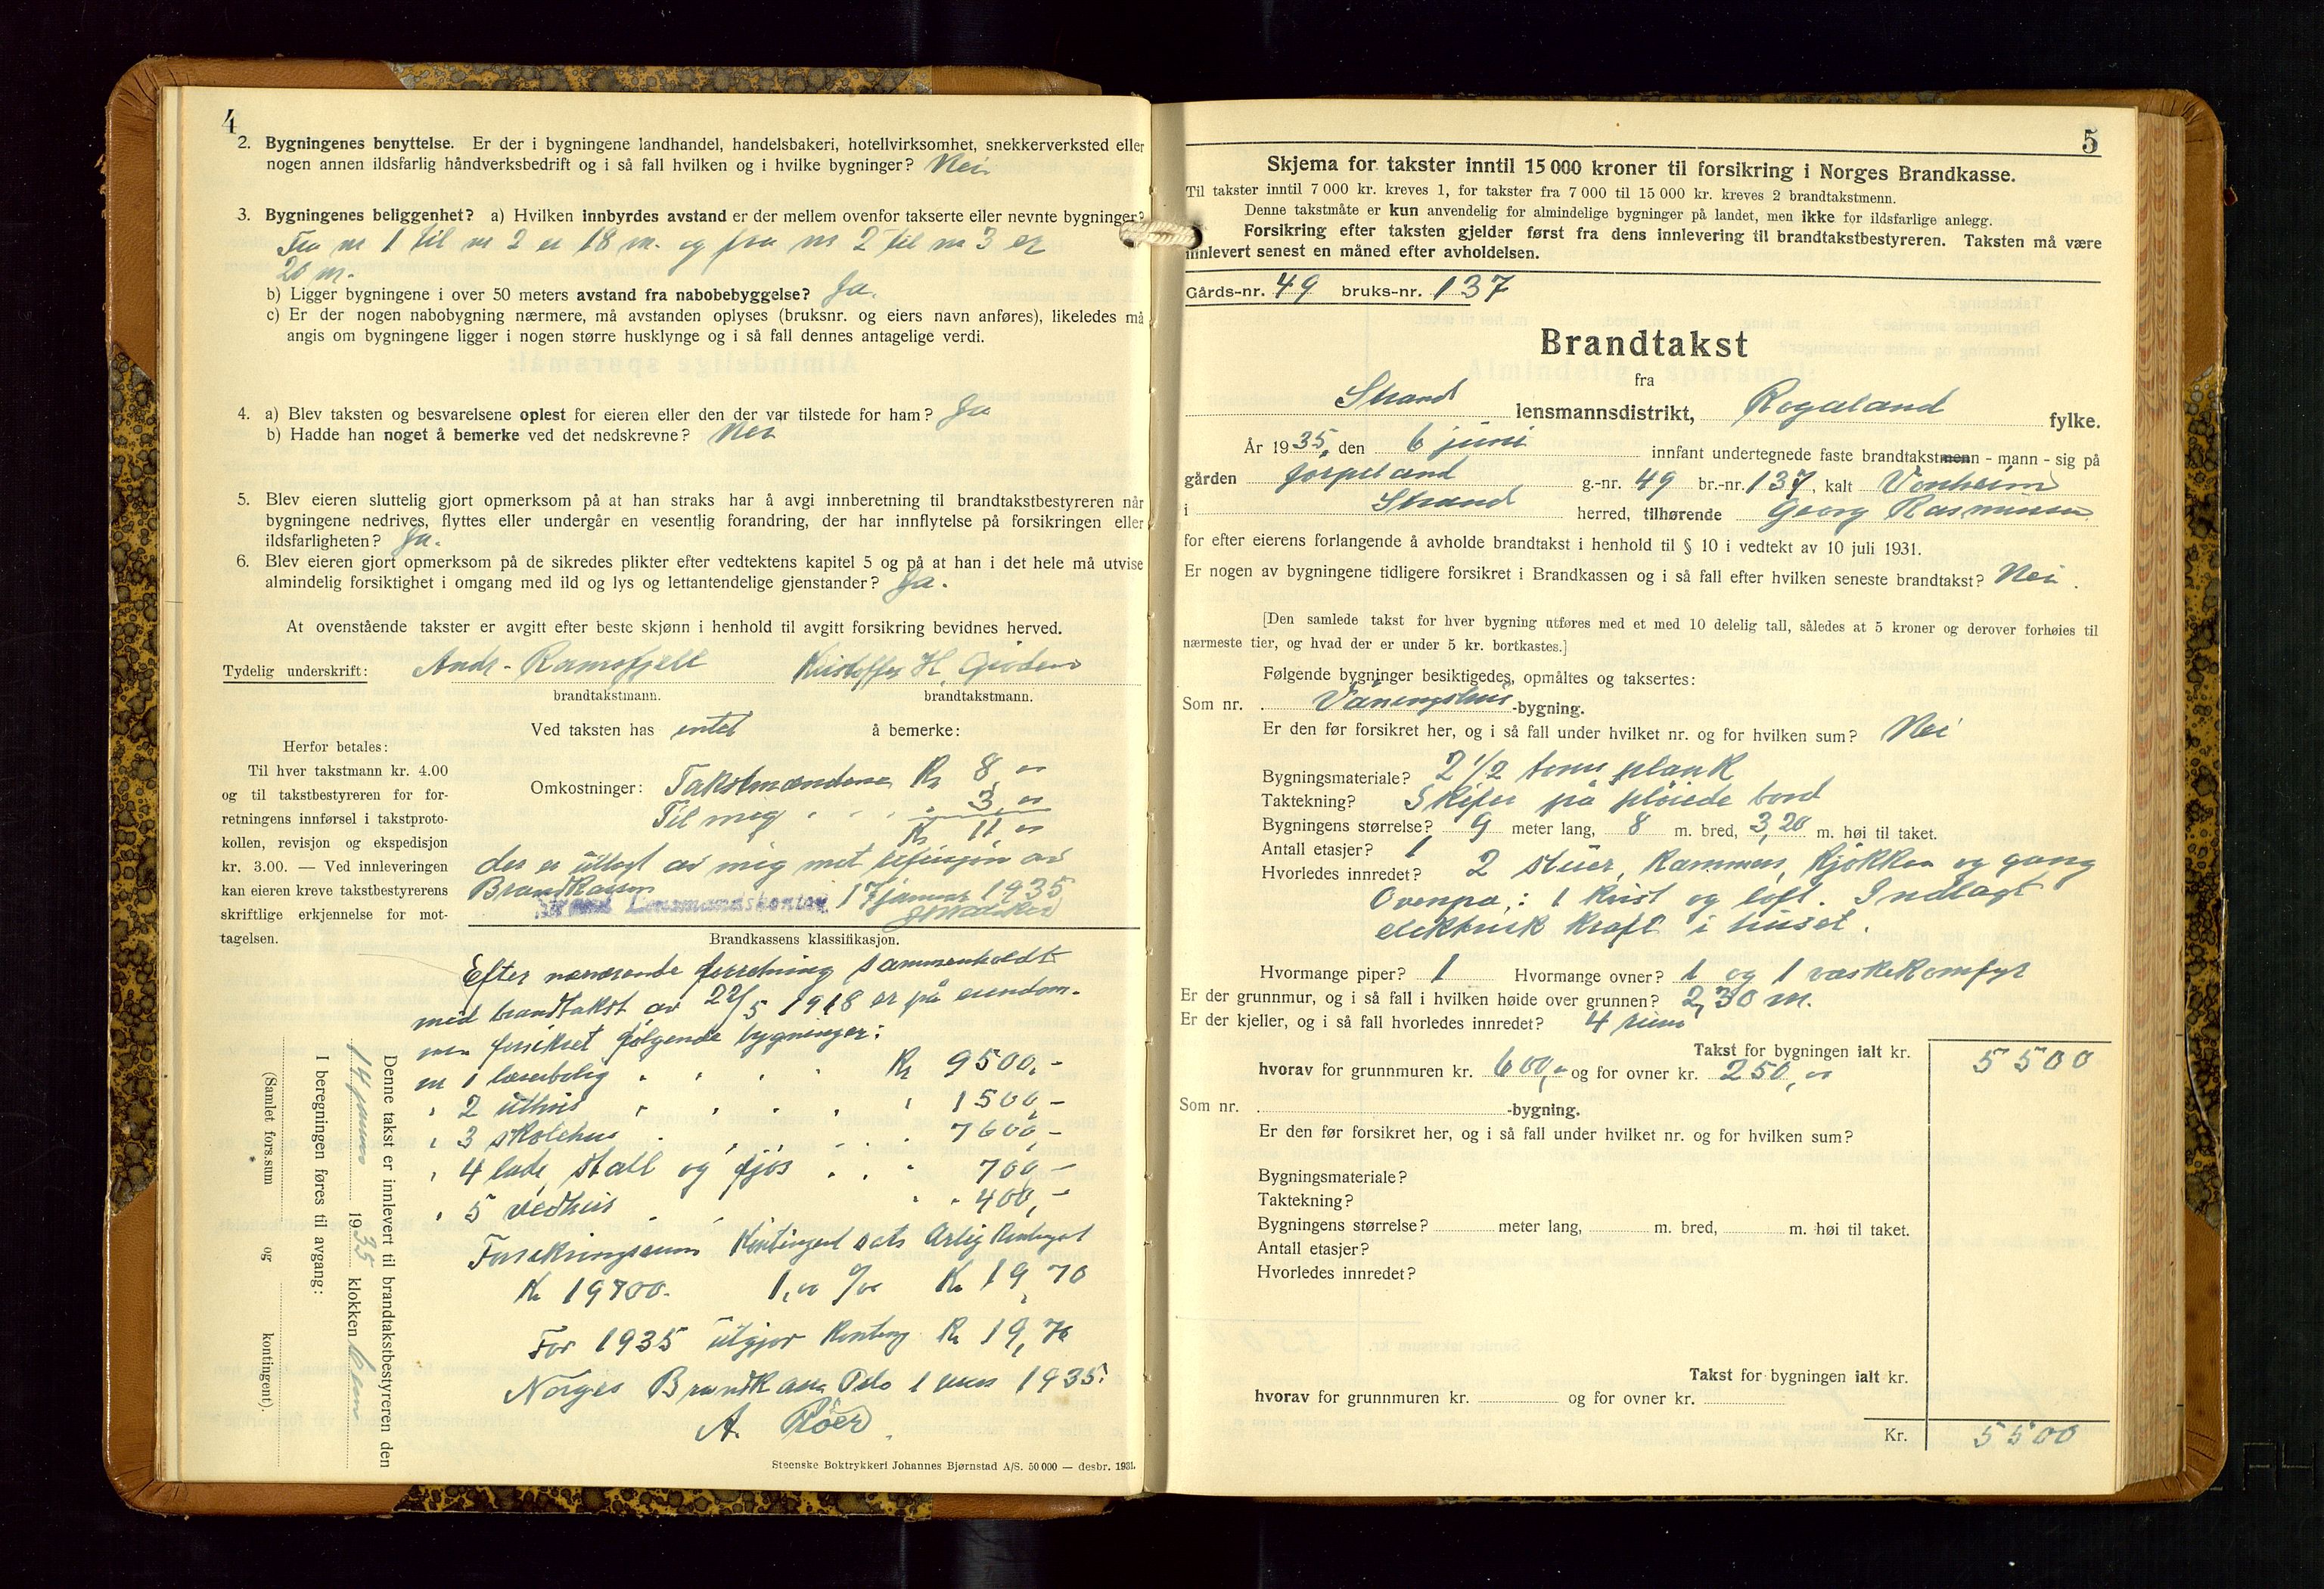 4
2. Bygningenes benyttelse. Er der i bygningene landhandel, handelsbakeri, hotellvirksomhet, snekkerverksted eller
nogen annen ildsfarlig håndverksbedrift og i så fall hvilken og i hvilke bygninger? Nei.
3. Bygningenes beliggenhet? a) Hvilken innbyrdes avstand er der mellem ovenfor takserte eller nevnte bygninger?
Fra nr 1 til nr 2 er 18 m. og fra nr 2 til nr 3 er
20 m.
b) Ligger bygningene i over 50 meters avstand fra nabobebyggelse? Ja.
c) Er der nogen nabobygning nærmere, må avstanden oplyses (bruksnr. og eiers navn anføres), likeledes må
angis om bygningene ligger i nogen større husklynge og i så fall dennes antagelige verdi.
4. a) Blev taksten og besvarelsene oplest for eieren eller den der var tilstede for ham? Ja
b) Hadde han noget å bemerke ved det nedskrevne? Nei
5. Blev eieren sluttelig gjort opmerksom på at han straks har å avgi innberetning til brandtakstbestyreren når
bygningene nedrives, flyttes eller undergår en vesentlig forandring, der har innflytelse på forsikringen eller
ildsfarligheten? Ja.
6. Blev eieren gjort opmerksom på de sikredes plikter efter vedtektens kapitel 5 og på at han i det hele må utvise
almindelig forsiktighet i omgang med ild og lys og lettantendelige gjenstander? Ja.
At ovenstående takster er avgitt efter beste skjønn i henhold til avgitt forsikring bevidnes herved.
Tydelig underskrift: Andr. Ramsfjell Kristoffer H.
brandtakstmann. brandtakstmann.
Ved taksten has intet å bemerke:
Herfor betales:
Til hver takstmann kr. 4.00
og til takstbestyreren for for-
retningens innførsel i takstproto-
kollen, revisjon og ekspedisjon
kr. 3.00. — Ved innleveringen
kan eieren kreve takstbestyrerens
skriftlige erkjennelse for mot-
tagelsen.
Omkostninger: Takstmændene Kr 8,00
Til meg 3,00
Kr 11,00
der er utlagt av meg mot refusjon av
Brandkassen
Strand Lensmandskontor, 17 januar 1935
Brandkassens klassifikasjon.
Efter nærværende forretning sammenholdt
med brandtakst av 22/5 1918 er på eiendom-
men forsikret følgende bygninger:
nr 1 lærerbolig Kr 9500,-
" 2 uthus " 1500,-
" 3 skolehus " 7600,-
" 4 lade, stall og fjøs " 700,-
" 5 vedhus " 400,-
Forsikringssum Kontingent sats Årlig Kontingent
Kr 19700.- 1,00 ‰ Kr 19,70
For 1935 utgjør Konting Kr 19,70
Norges Brandkasse Oslo 1 mars 1935.
A. Röer
Steenske Boktrykkeri Johannes Bjørnstad A/S. 50 000 — desbr. 1931.
Denne takst er innlevert til brandtakstbestyreren den
14 januar 1935 klokken
I beregningen føres til avgang:
(Samlet fors.sum og kontingent).
5
Skjema for takster inntil 15 000 kroner til forsikring i Norges Brandkasse.
Til takster inntil 7 000 kr. kreves 1, for takster fra 7 000 til 15 000 kr. kreves 2 brandtakstmenn.
Denne takstmåte er kun anvendelig for almindelige bygninger på landet, men ikke for ildsfarlige anlegg.
Forsikring efter taksten gjelder først fra dens innlevering til brandtakstbestyreren. Taksten må være
innlevert senest en måned efter avholdelsen.
Gårds-nr. 49 bruks-nr. 137
Brandtakst
fra
Strand lensmannsdistrikt, Rogaland fylke.
År 1935, den 6 juni innfant undertegnede faste brandtakstmenn - mann - sig på
gården Jørpeland g.-nr. 49 br.-nr. 137, kalt Vonheim
i Strand herred, tilhørende Georg Rasmussen
for efter eierens forlangende å avholde brandtakst i henhold til § 10 i vedtekt av 10 juli 1931.
Er nogen av bygningene tidligere forsikret i Brandkassen og i så fall efter hvilken seneste brandtakst? Nei.
[Den samlede takst for hver bygning utføres med et med 10 delelig tall, således at 5 kroner og derover forhøies til
nærmeste tier, og hvad der er under 5 kr. bortkastes.]
Følgende bygninger besiktigedes, opmåltes og taksertes:
Som nr. Våningshus-bygning.
Er den før forsikret her, og i så fall under hvilket nr. og for hvilken sum? Nei
Bygningsmateriale? 2 1/2 toms plank
Taktekning? Skifer på pløiede bord
Bygningens størrelse? 9 meter lang, 8 m. bred, 3,20 m. høi til taket.
Antall etasjer? 1
Hvorledes innredet? 2 stuer, Kammers, Kjøkken og gang
Ovenpå: 1 kvist og loft. Indlagt
elektrisk kraft i huset.
Hvormange piper? 1 Hvormange ovner? 1 og 1 vaskekomfyr
Er der grunnmur, og i så fall i hvilken høide over grunnen? 2,30 m.
Er der kjeller, og i så fall hvorledes innredet? 4 rum
Takst for bygningen ialt kr. 5500
hvorav for grunnmuren kr. 600,00 og for ovner kr. 250,00
Som nr. -bygning.
Er den før forsikret her, og i så fall under hvilket nr. og for hvilken sum?
Bygningsmateriale?
Taktekning?
Bygningens størrelse? meter lang, m. bred, m. høi til taket.
Antall etasjer?
Hvorledes innredet?
Takst for bygningen ialt kr.
hvorav for grunnmuren kr. og for ovner kr.
Kr. 5500